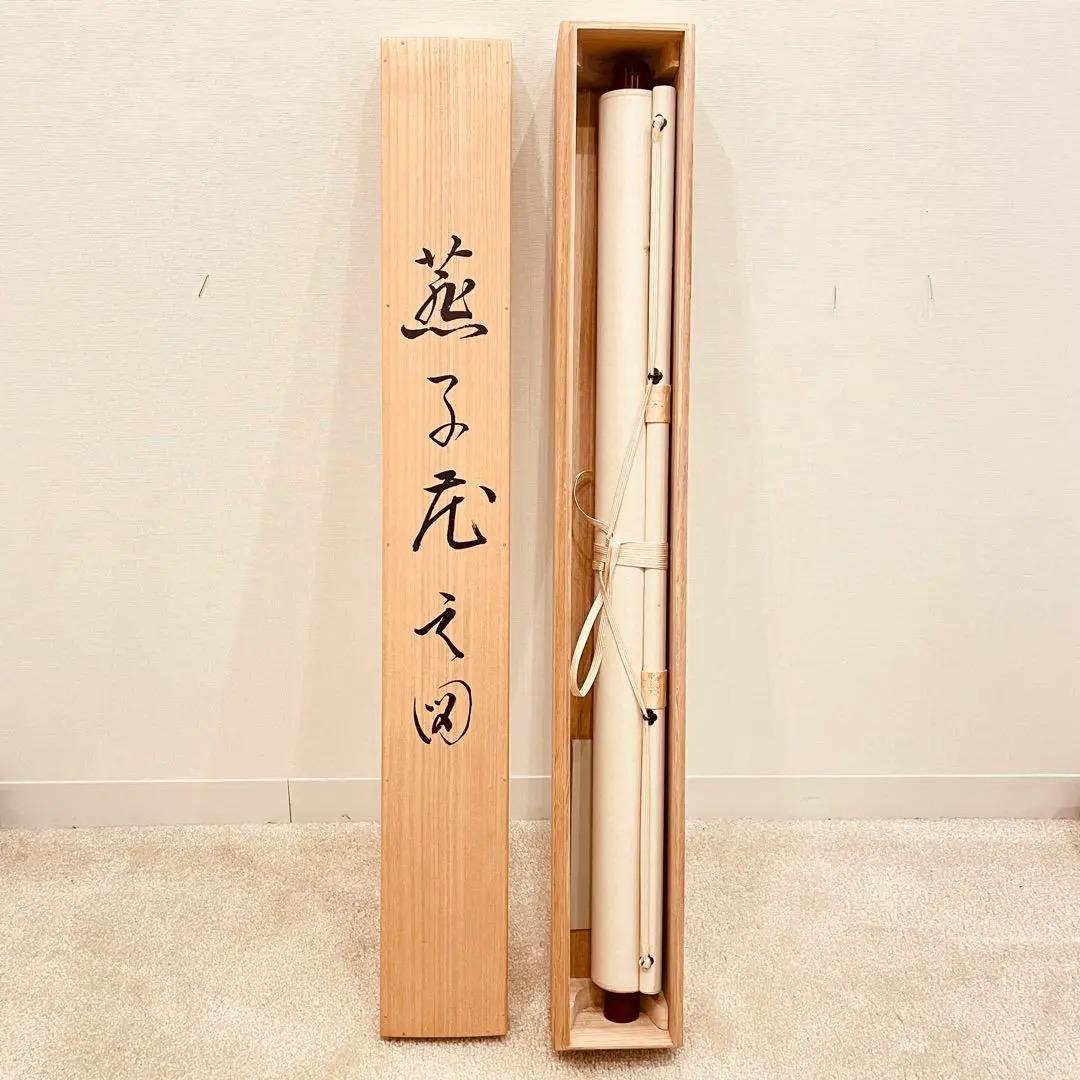 燕子花之図